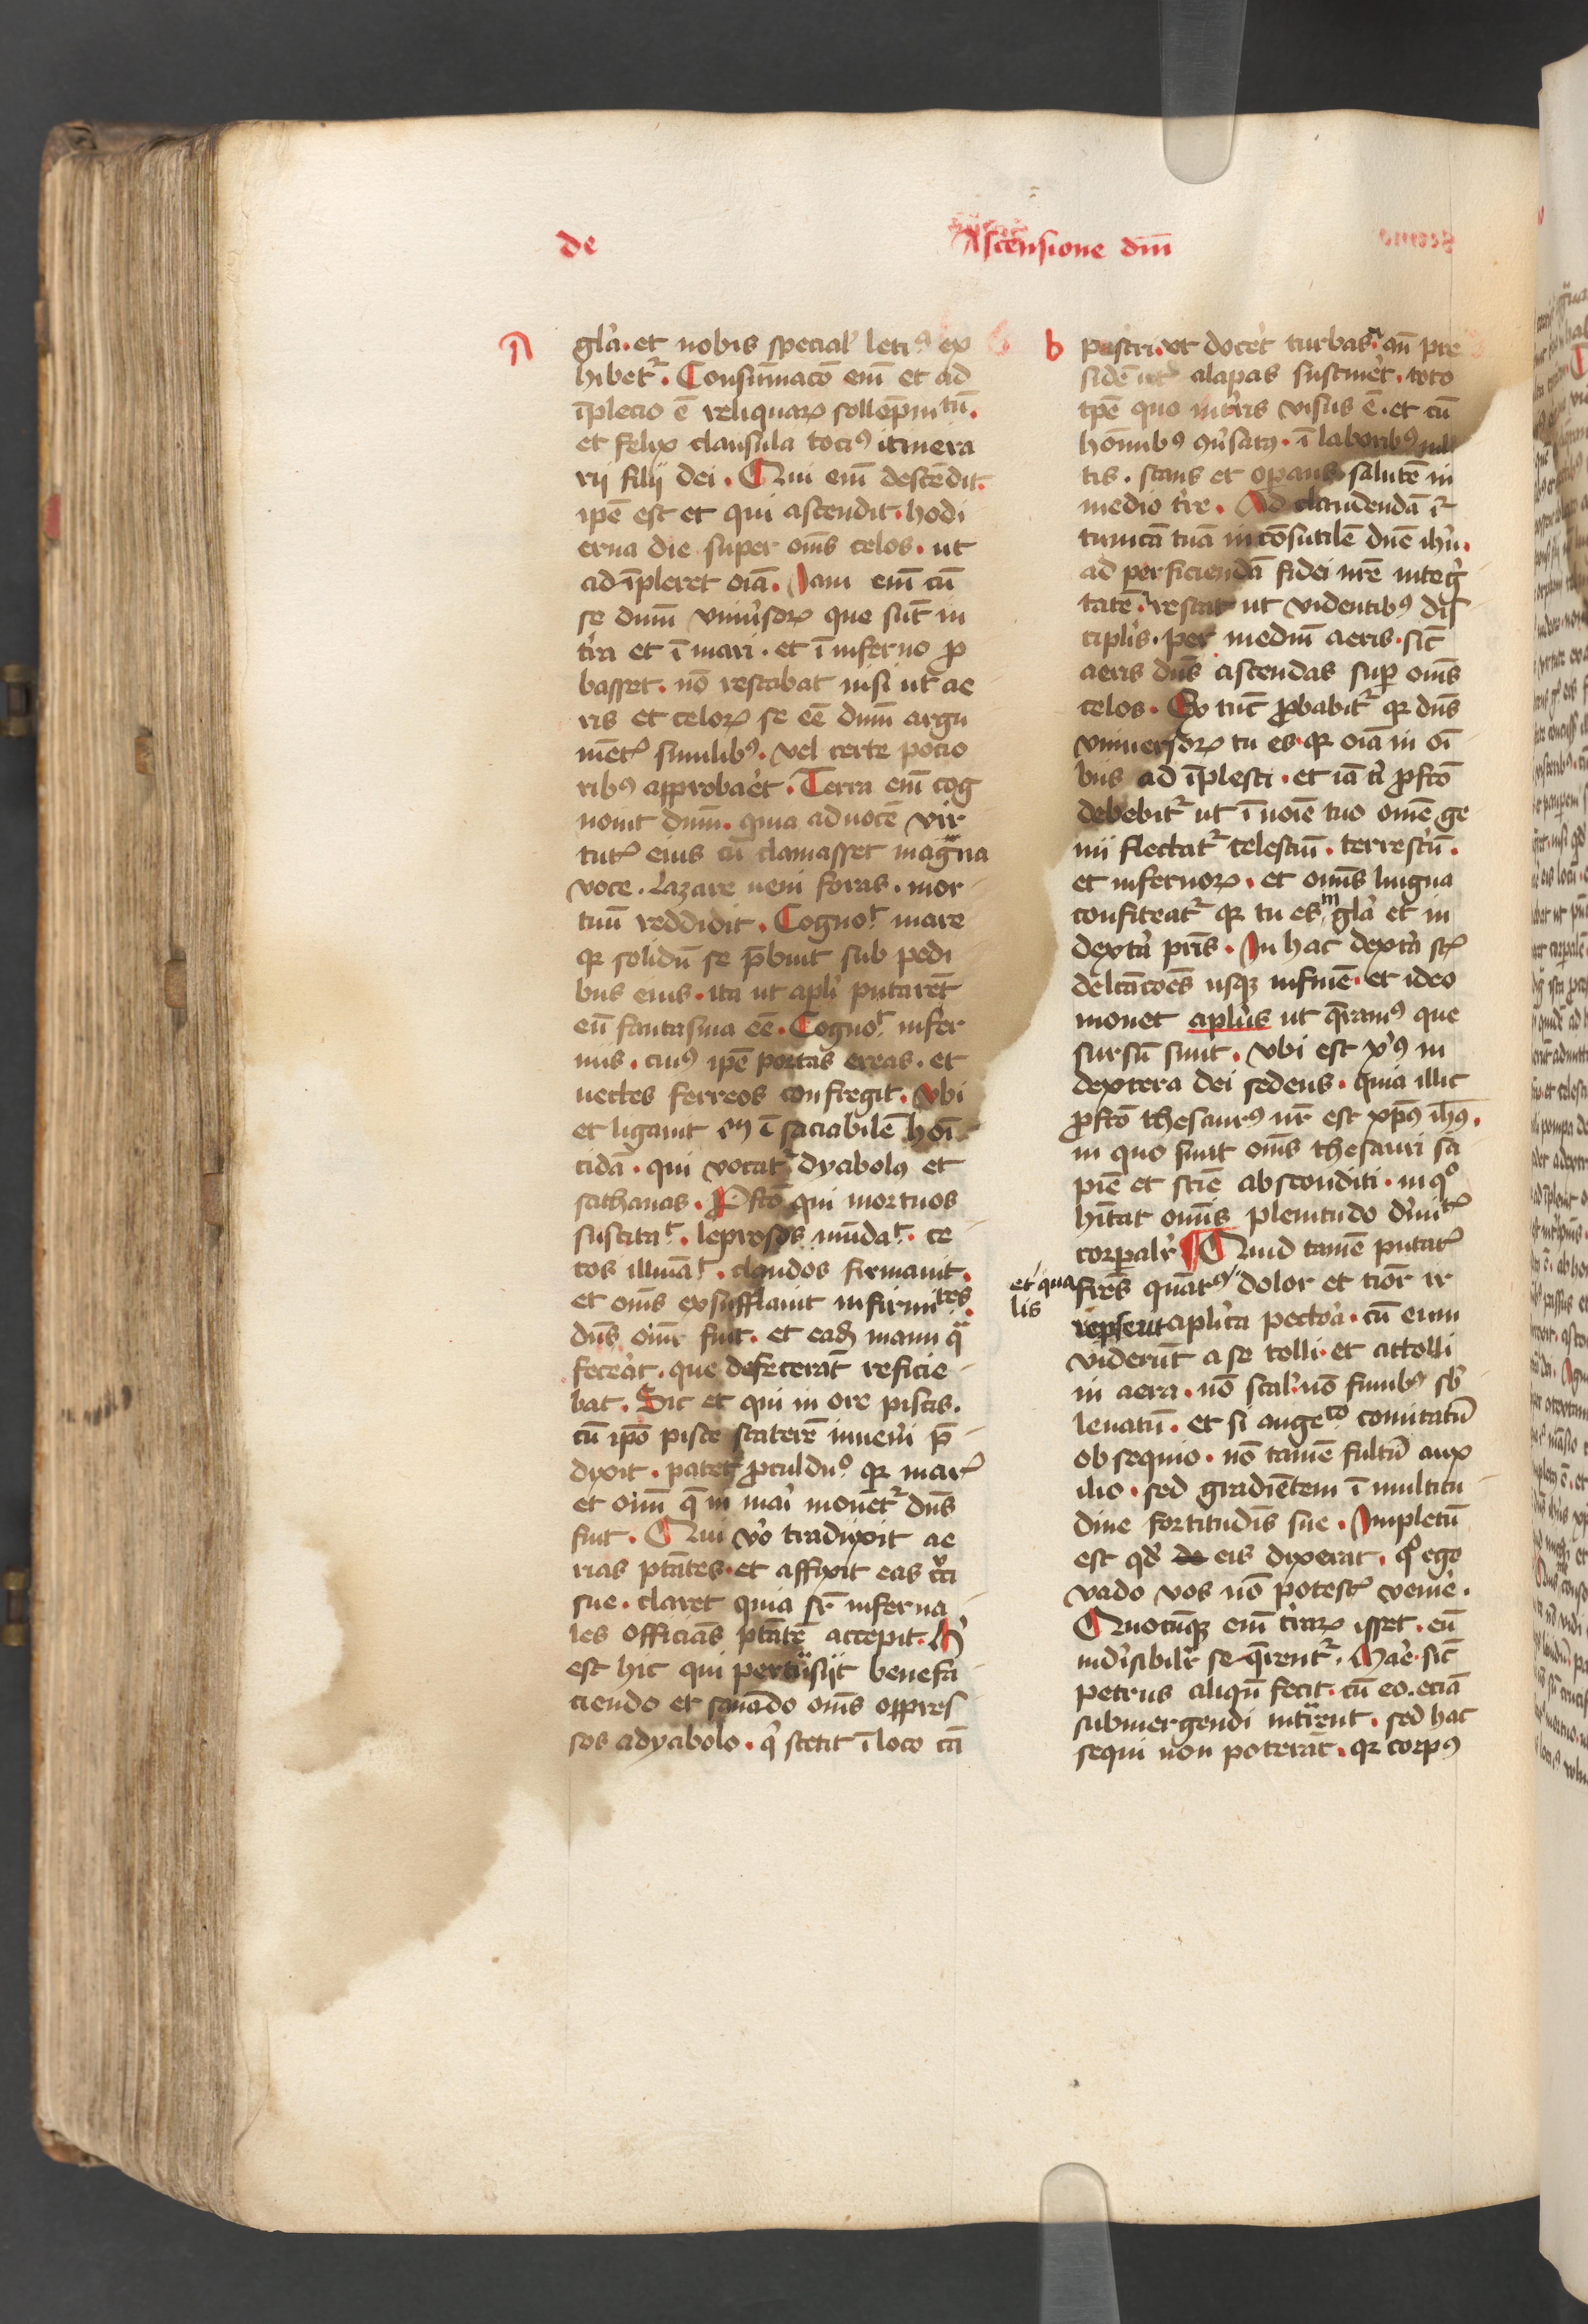 de
Ascensione dnī
a
gl'a. et nobis special' leti⁹ ex
hibet᷑. Consūmacō enī et ad
īplecio ē reliquaꝝ sollēpnitū.
et felix clausula toci⁹ itinera
rij filij dei. Qui enī descēdit.
ipē est et qui ascendit. hodi
erna die super om̄s celos. ut
ad īpleret oīa. Iam enī cū
se dnm̄ vniu'soꝝ que sūt in
t'ra et ī mari. et ī inferno ꝓ
basset. nō restabat nisi ut ae
ris et celoꝝ se eē dnm̄ argu
mētꝭ similib⁹. vel certe pocio
rib⁹ approba'et. Terra enī cog
nouit dnm̄. quia ad uocē vir
tutꝭ eius cū clamasset magna
voce. Lazare ueni foras. mor
tuū reddidit. Cognoᵗ mare
qꝛ solidū se p̄buit sub pedi
bus eius. ita ut apl'i putarēt
eū fantasma eē. Cognoᵗ infer
nus. cui⁹ ipē portas ereas. et
uectes ferreos confregit. Vbi
et ligauit īsaciabilē homi
cidā. qui vocat᷑ dyabolꝰ et
sathanas. Pfcō qui mortuos
suscitaᵗ. leprosos mūdaᵗ. ce
cos illumīaᵗ. claudos firmauit.
et om̄s exsufflauit infirmitᵉˢ.
dn̄s oīm fuit. et eadē manu qᵃ
fece'at. que defecerāt reficie
bat. Sic et qui in ore piscis.
cū ipō pisce staterē inueni'i p̄
dixit. patet ꝓculdu⁰ qꝛ marꝭ
et oīm q̄ in mari mouēt᷑ dn̄s
fuit. Qui v'o traduxit ae
rias ptātes. et affixit eas c'ci
sue. claret quia sr̄ inferna
les officias ptātē accepit. H'
est hic qui pertūsijt benefa
ciendo et sanādo om̄s oppres
sos adyabolo. q' stetit ī loco cā
b
pestri. vt doce'et turbas. an̄ pre
sidē ut alapas sustine'et. toto
tpē quo in t'ris visus ē. et cū
homīnib⁹ 9u'satꝰ. ī laborib⁹ mul
tis. stans et operans salutē in
medio t're. Ad claudendā ī᷑
tunicā tuā incōsutilē dnē ihū.
ad perficiendā fidei nr̄e integ'
tatē. restat ut videntib⁹ dis
cipl'is. per mediū aeris. sic̄
aeris dn̄s ascendas suꝑ om̄s
celos. Ex tūc ꝓbabit᷑ qꝛ dn̄s
vniuersoꝝ tu es. qꝛ oīa in oī
bus ad īplesti. et iā t' ꝓfcō
debebit᷑ ut ī noīe tuo omē ge
nu flectat᷑ celestiū. terrestiū.
et infernoꝝ. et om̄s lingua
confiteat᷑ qꝛ tu es in gl'a et in
dext'a pr̄is. In hac dext'a st̄
delcācōēs usqꝫ infinē. et ideo
monet apl'us ut q̄ram⁹ que
sursū sunt. vbi est xp̄⁹ in
dextera dei sedens. quia illic
ꝓfcō thesaur⁹ nr̄ est xp̄us ih̄us.
in quo sunt om̄s thesauri sa
piē et sciē absconditi. in q⁰
hītat om̄is plenitudo d'initꝭ
corpal'r Quid tamē putatꝭ
et qua
lis
fr̄es quāt⁹ dolor et timor ir
repserit apl'ica pecto'a. cū eum
viderūt a se tolli. et attolli
in aera. nō scal' nō funib⁹ sb'
leuatū. et si angeᶜᵒ comitatū
obsequio. nō tamē fultū aux
ilio. sed gradiētem ī multitu
dine fortitudīs sue. Impletū
est qd' de eis dixerat. q⁰ ego
vado vos nō potestꝭ venire.
Quocūqꝫ enī t'raꝝ isset. eū
indi'sibil'r seq̄rent᷑. Mare. sic̄
petrus aliqn̄ fecit. cū eo. eciā
submergendi intrarent. sed hac
sequi non poterāt. qꝛ corpꝰ